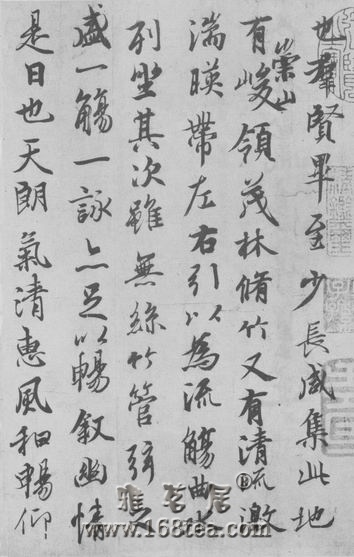 也羣賢畢至少長咸集此地
有崇山峻領茂林脩竹又有清流激
湍暎帶左右引以為流觴曲水
列坐其次雖無絲竹管弦之
盛一觴一詠亦足以暢敘幽情
是日也天朗氣清惠風和暢仰
雅茗居®
www.168tea.com